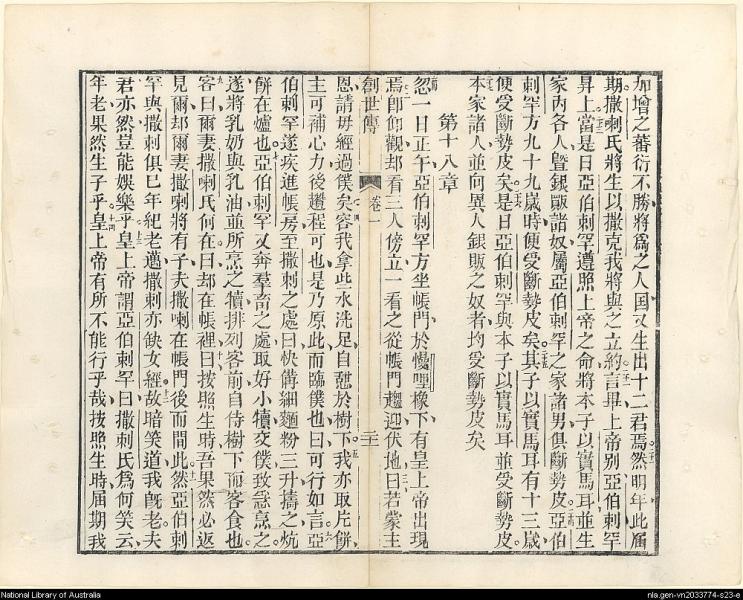 加增之蕃衍不勝將爲之人国又生出十二君焉然明年此届
期撒喇氏將生以撒克我將與之立約言畢上帝别亞伯剌罕
昇上當是日亞伯剌罕遵照上帝之命將本子以實馬耳並生
家内各人曁銀販諸奴屬亞伯剌罕之家諸男俱斷勢皮亞伯
剌罕方九十九歲時便受斷勢皮矣其子以實馬耳有十三歲
便受斷勢皮矣是日亞伯剌罕與本子以實馬耳並受斷勢皮
本家諸人並向異人銀販之奴者均受斷勢皮矣
第十八章
忽一日正午亞伯剌罕方坐帳門於慢哩橡下有皇上帝出現
焉卽仰觀却看三人傍立一看之從帳門趨迎伏地曰若蒙主
創世傳 卷一 二十
恩請毋經過僕矣容我拿些水洗足自憩於樹下我亦取片餅
主可補心力後趲程可也是乃原此而臨僕也曰可行如言亞
伯剌罕遂疾進帳房至撒剌之處曰快備細麵粉三升擣之炕
餅在爐也亞伯剌罕又奔羣畜之處取好小犢交僕致急烹之
遂將乳奶與乳油並所烹之犢排列客前自侍樹下而客食也
客曰爾妻撒喇氏何在曰却在帳裡曰按照生時吾果然必返
見爾却爾妻撒喇將有子夫撒喇在帳門後而聞此然亞伯剌
罕與撒剌俱已年紀老邁撒剌亦缺女經故暗笑道我旣老夫
君亦然豈能娛樂乎皇上帝謂亞伯剌罕曰撒剌氏爲何笑云
年老果然生子乎皇上帝有所不能行乎哉按照生時届期我
National Library of Australia
nla.gen-vn2033774-s23-e